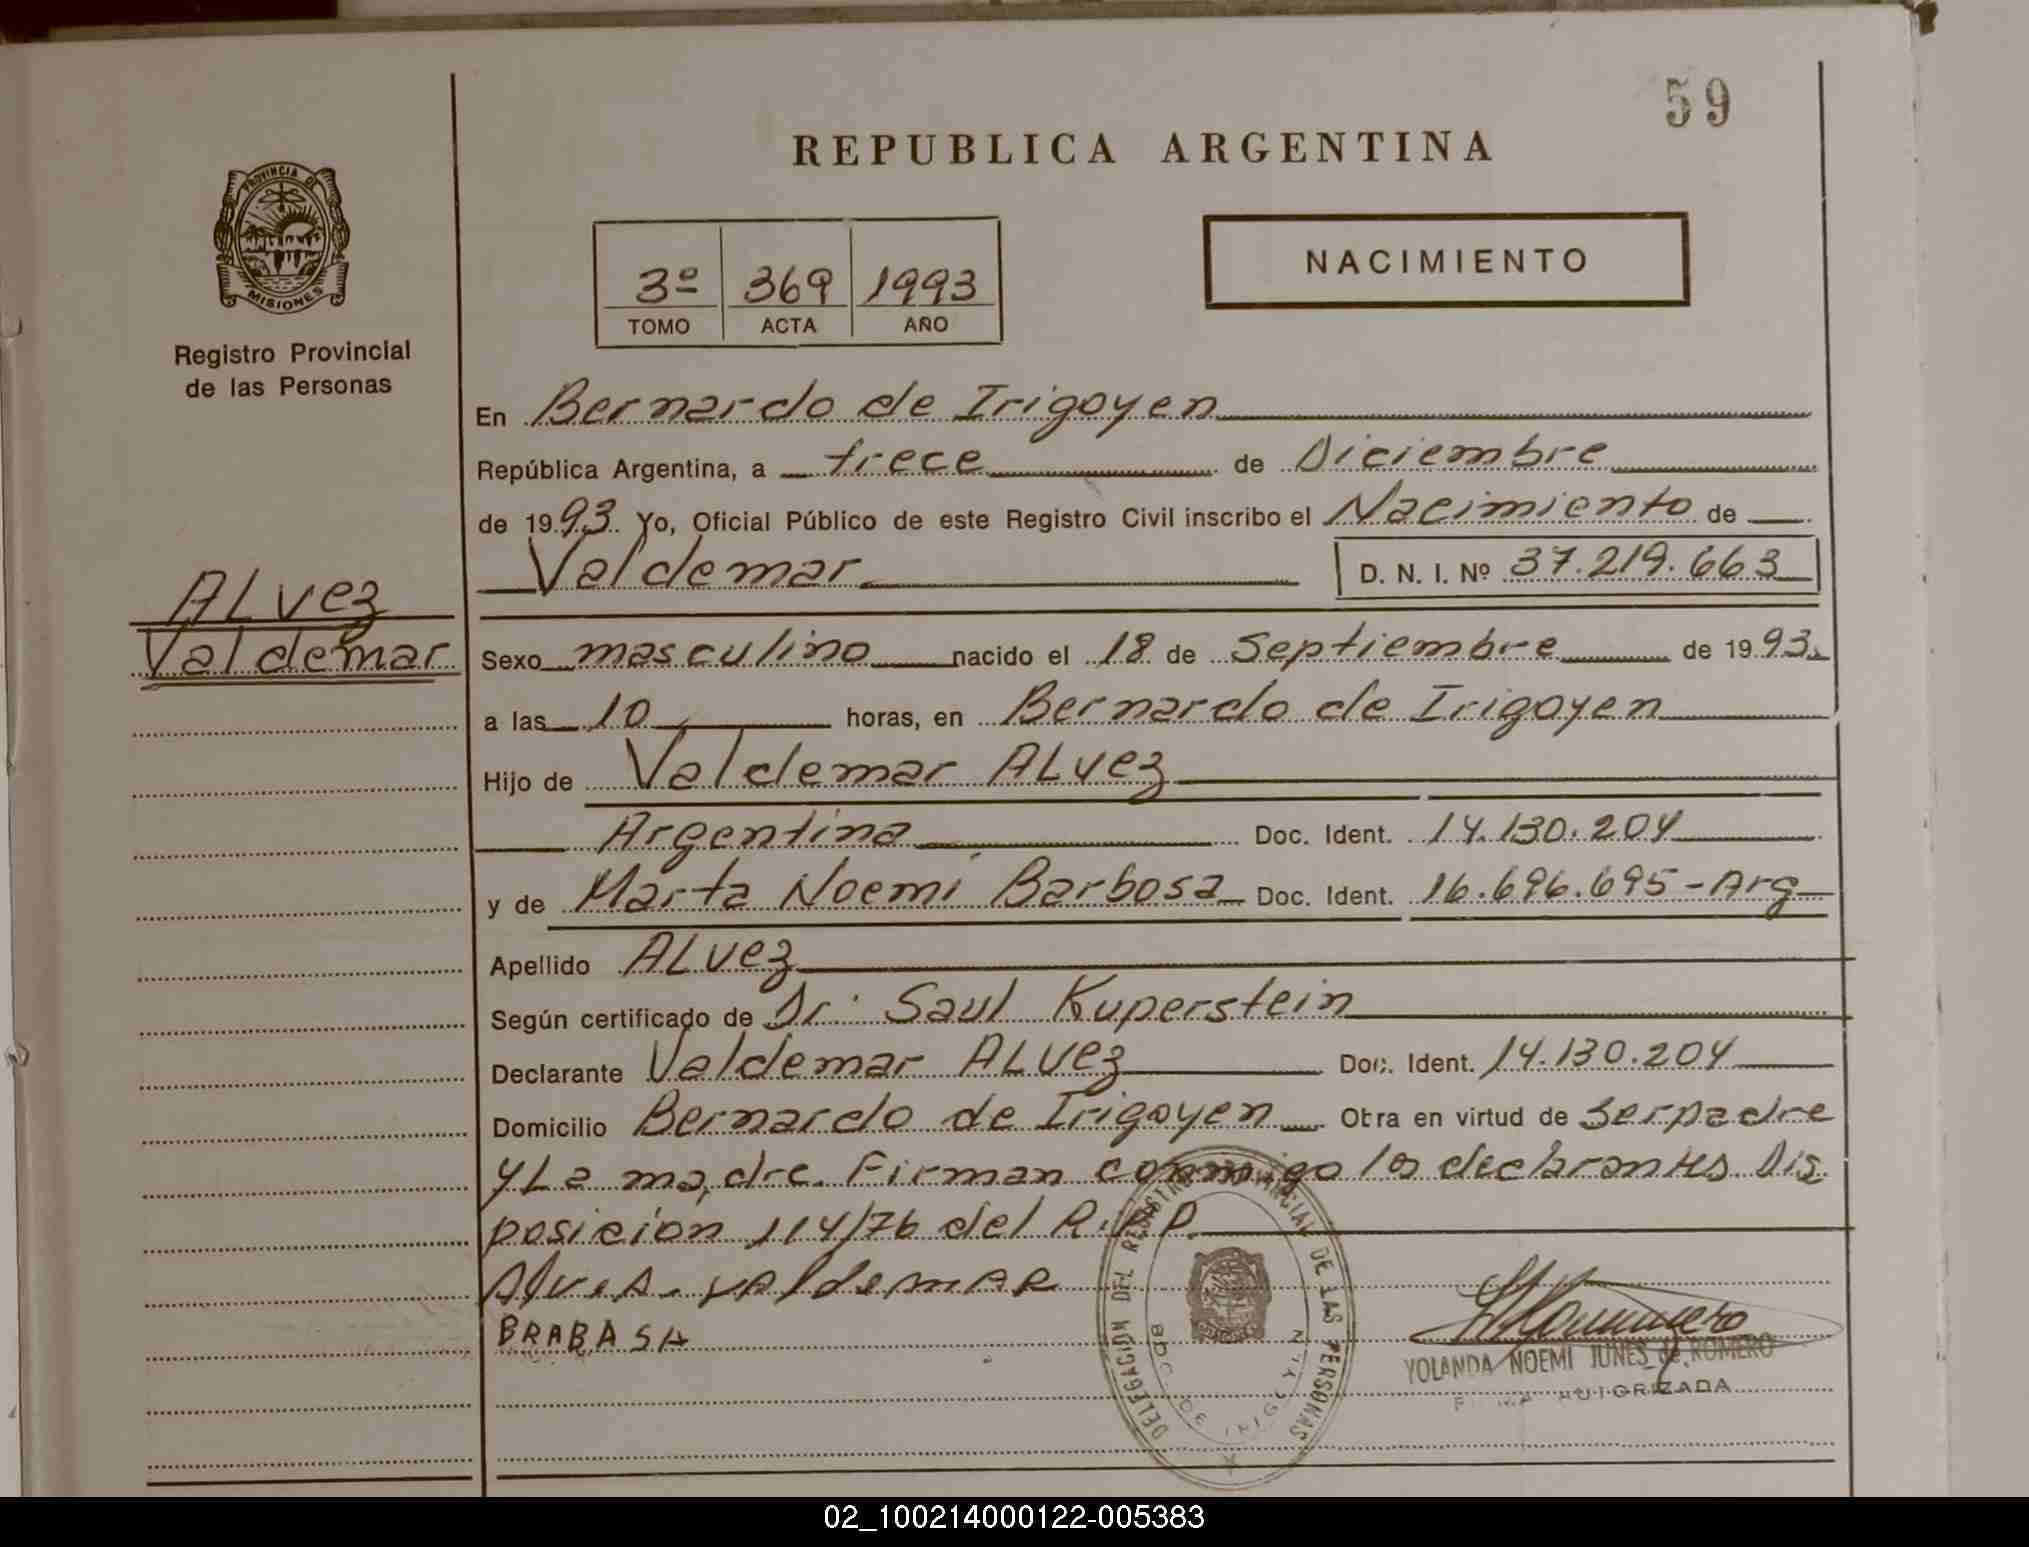 59
REPUBLICA ARGENTINA
PROVINCIA DE
MISIONES
Registro Provincial
de las Personas
3º 369 1993
TOMO ACTA AÑO
NACIMIENTO
En Bernardo de Irigoyen
República Argentina, a trece de Diciembre
de 1993. Yo, Oficial Público de este Registro Civil inscribo el Nacimiento de
Valdemar D. N. I. Nº 37.219.663
ALvez
Valdemar
Sexo masculino nacido el 18 de Septiembre de 1993.
a las 10 horas, en Bernardo de Irigoyen
Hijo de Valdemar ALvez
Argentina Doc. Ident. 14.130.204
y de Marta Noemi Barbosa Doc. Ident. 16.696.695-Arg
Apellido ALvez
Según certificado de Dr. Saul Kuperstein
Declarante Valdemar ALvez Doc. Ident. 14.130.204
Domicilio Bernardo de Irigoyen Otra en virtud de ser padre
y La madre. Firman conmigo los declarantes Dis
posicion 114/76 del R.P.P.
valdemar
BRABASA
DELEGACIÓN DEL REGISTRO PROVINCIAL DE LAS PERSONAS
BDO. DE IRIGOYEN
YOLANDA NOEMI JUNES de ROMERO
FIRMA AUTORIZADA
02_100214000122-005383